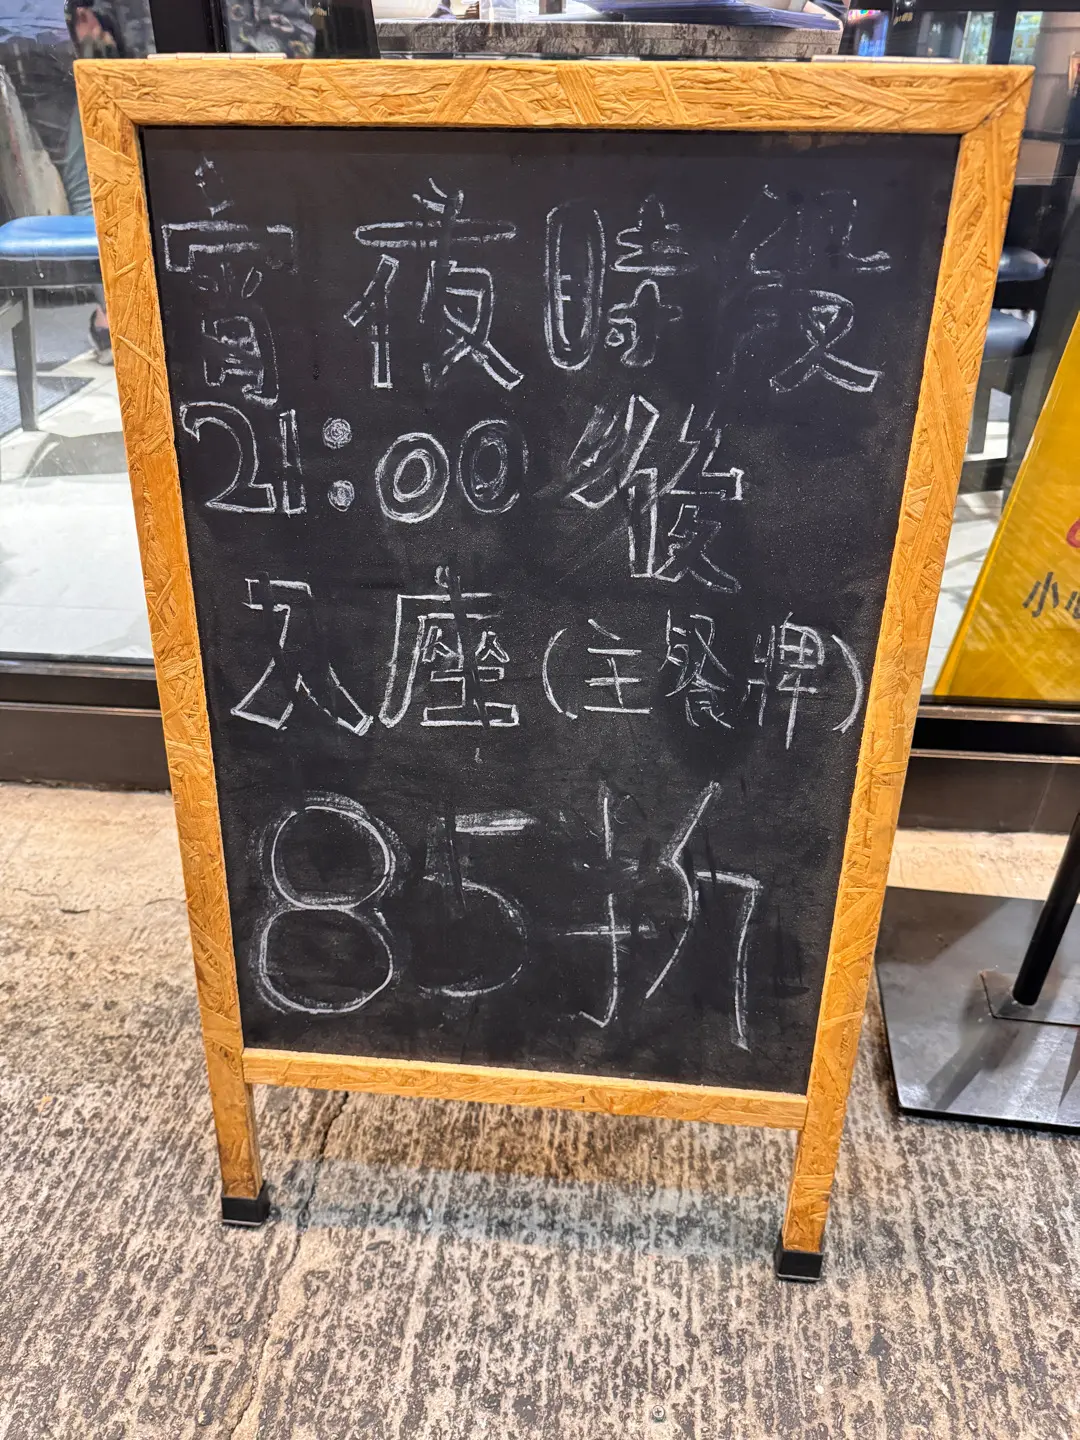 宵夜時段
21:00後
入座(主餐牌)
85折
小心